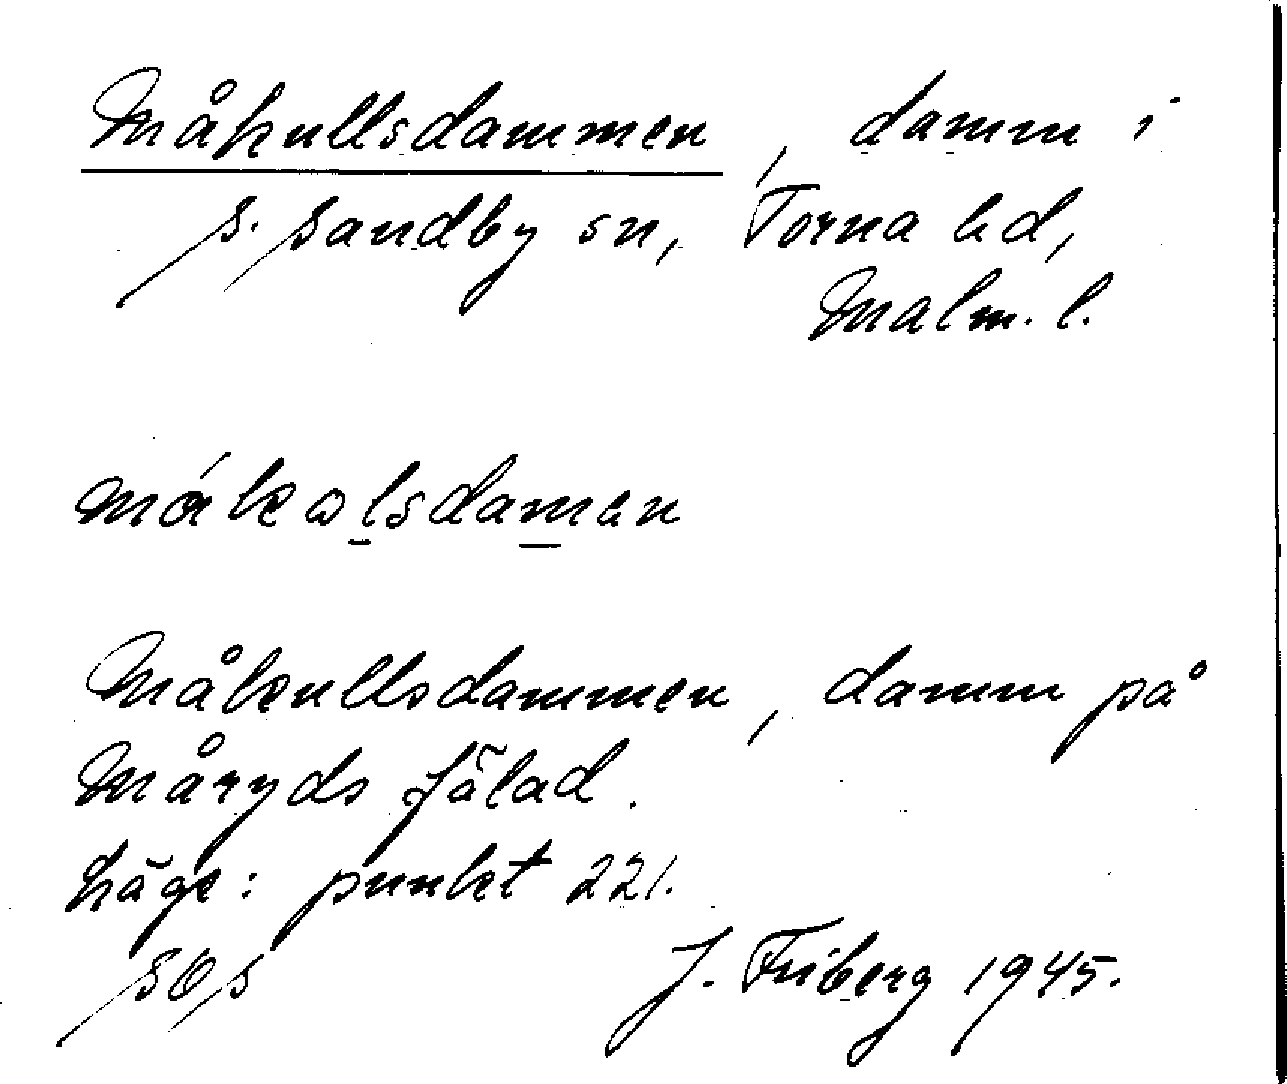 Måkullsdammen, damm i
S. Sandby sn, Torna hd,
Malm. l.
Måkullsdammen, damm på
Måryds fälad.
Läge: punkt 221.
SOS J. Friberg 1945.